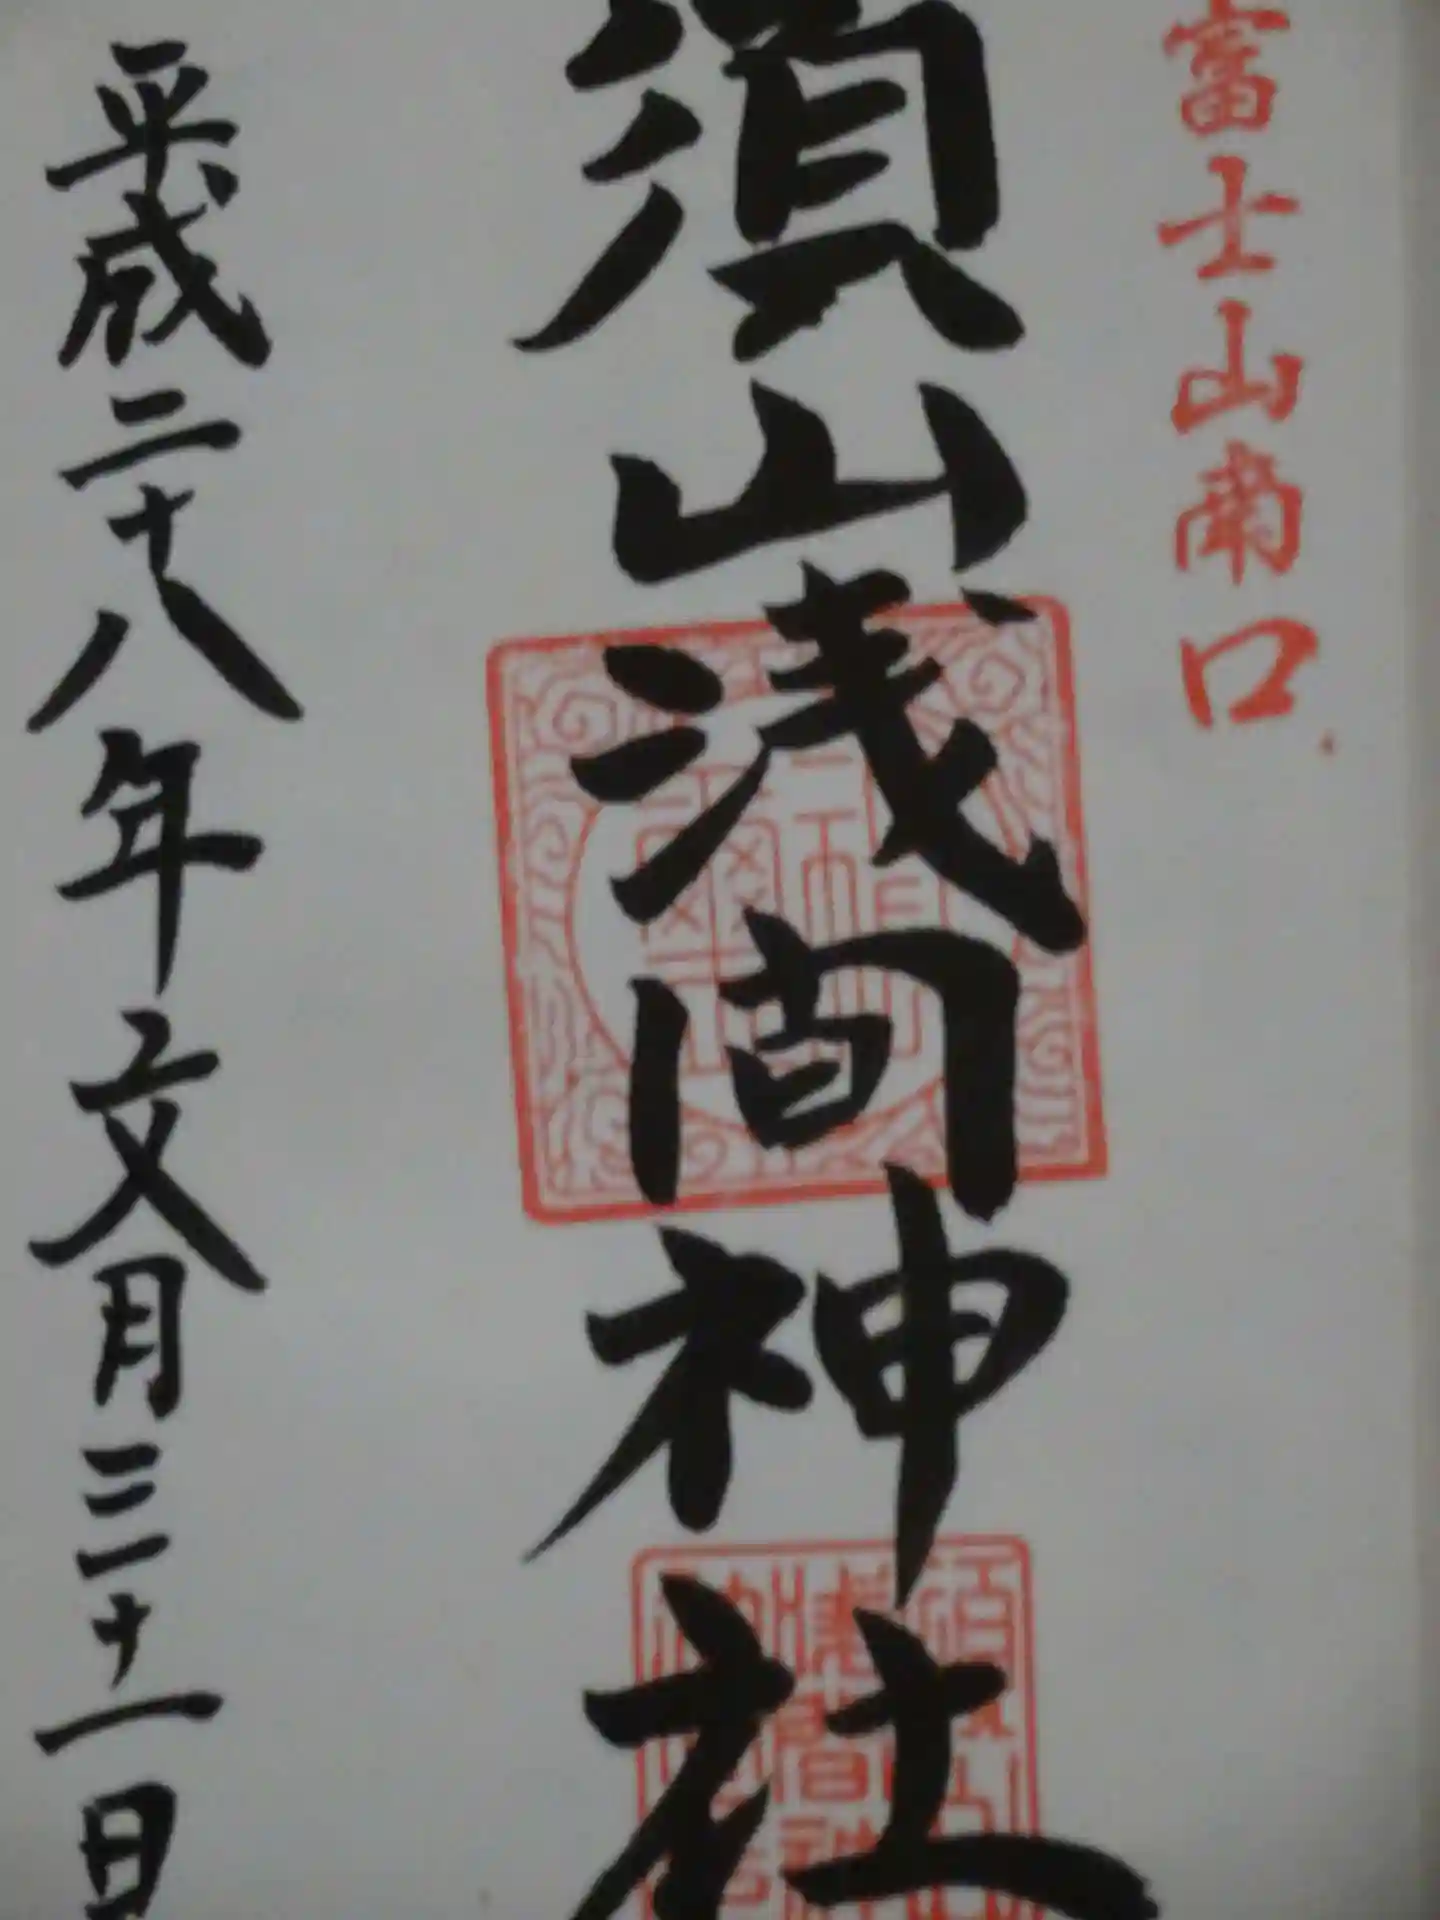 富士山南口
須山浅間神社
平成二十八年文月三十一日